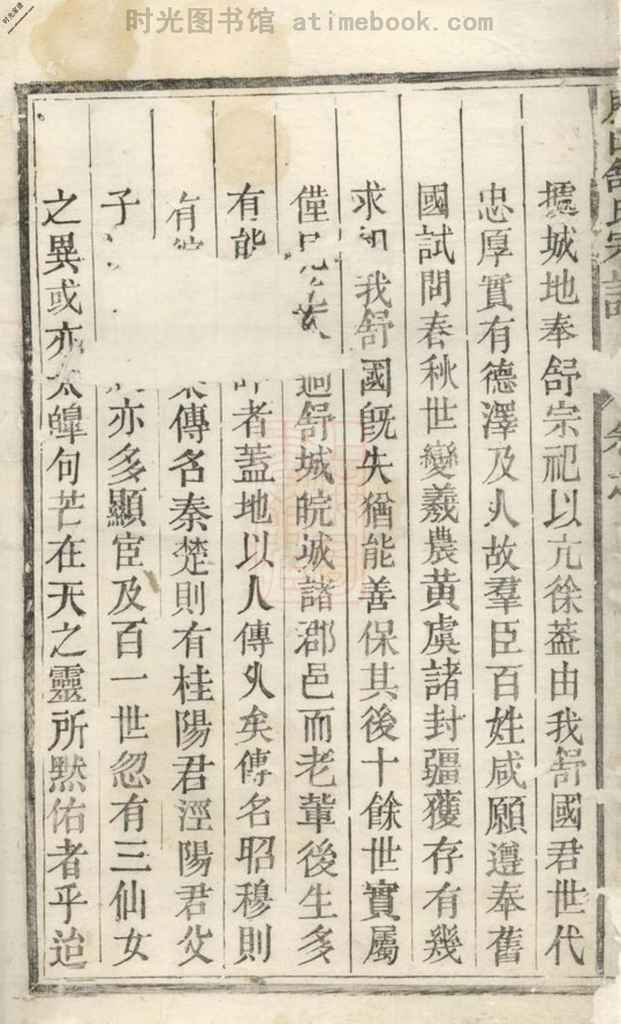 时光图书馆 atimebook.com
舒氏宗譜
據城地奉舒宗祀以亢徐蓋由我舒國君世代
忠厚實有德澤及人故羣臣百姓咸願遵奉舊
國試問春秋世變羲農黃虞諸封疆獲存有幾
求如我舒國旣失猶能善保其後十餘世實屬
僅見 迴舒城皖城諸郡邑而老輩後生多
有能 者蓋地以人傳久矣傳名昭穆則
有 傳名秦楚則有桂陽君涇陽君父
子 亦多顯宦及百一世忽有三仙女
之異或亦太皥句芒在天之靈所默佑者乎迨